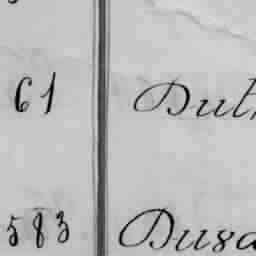 61 Dut
583 Dusa